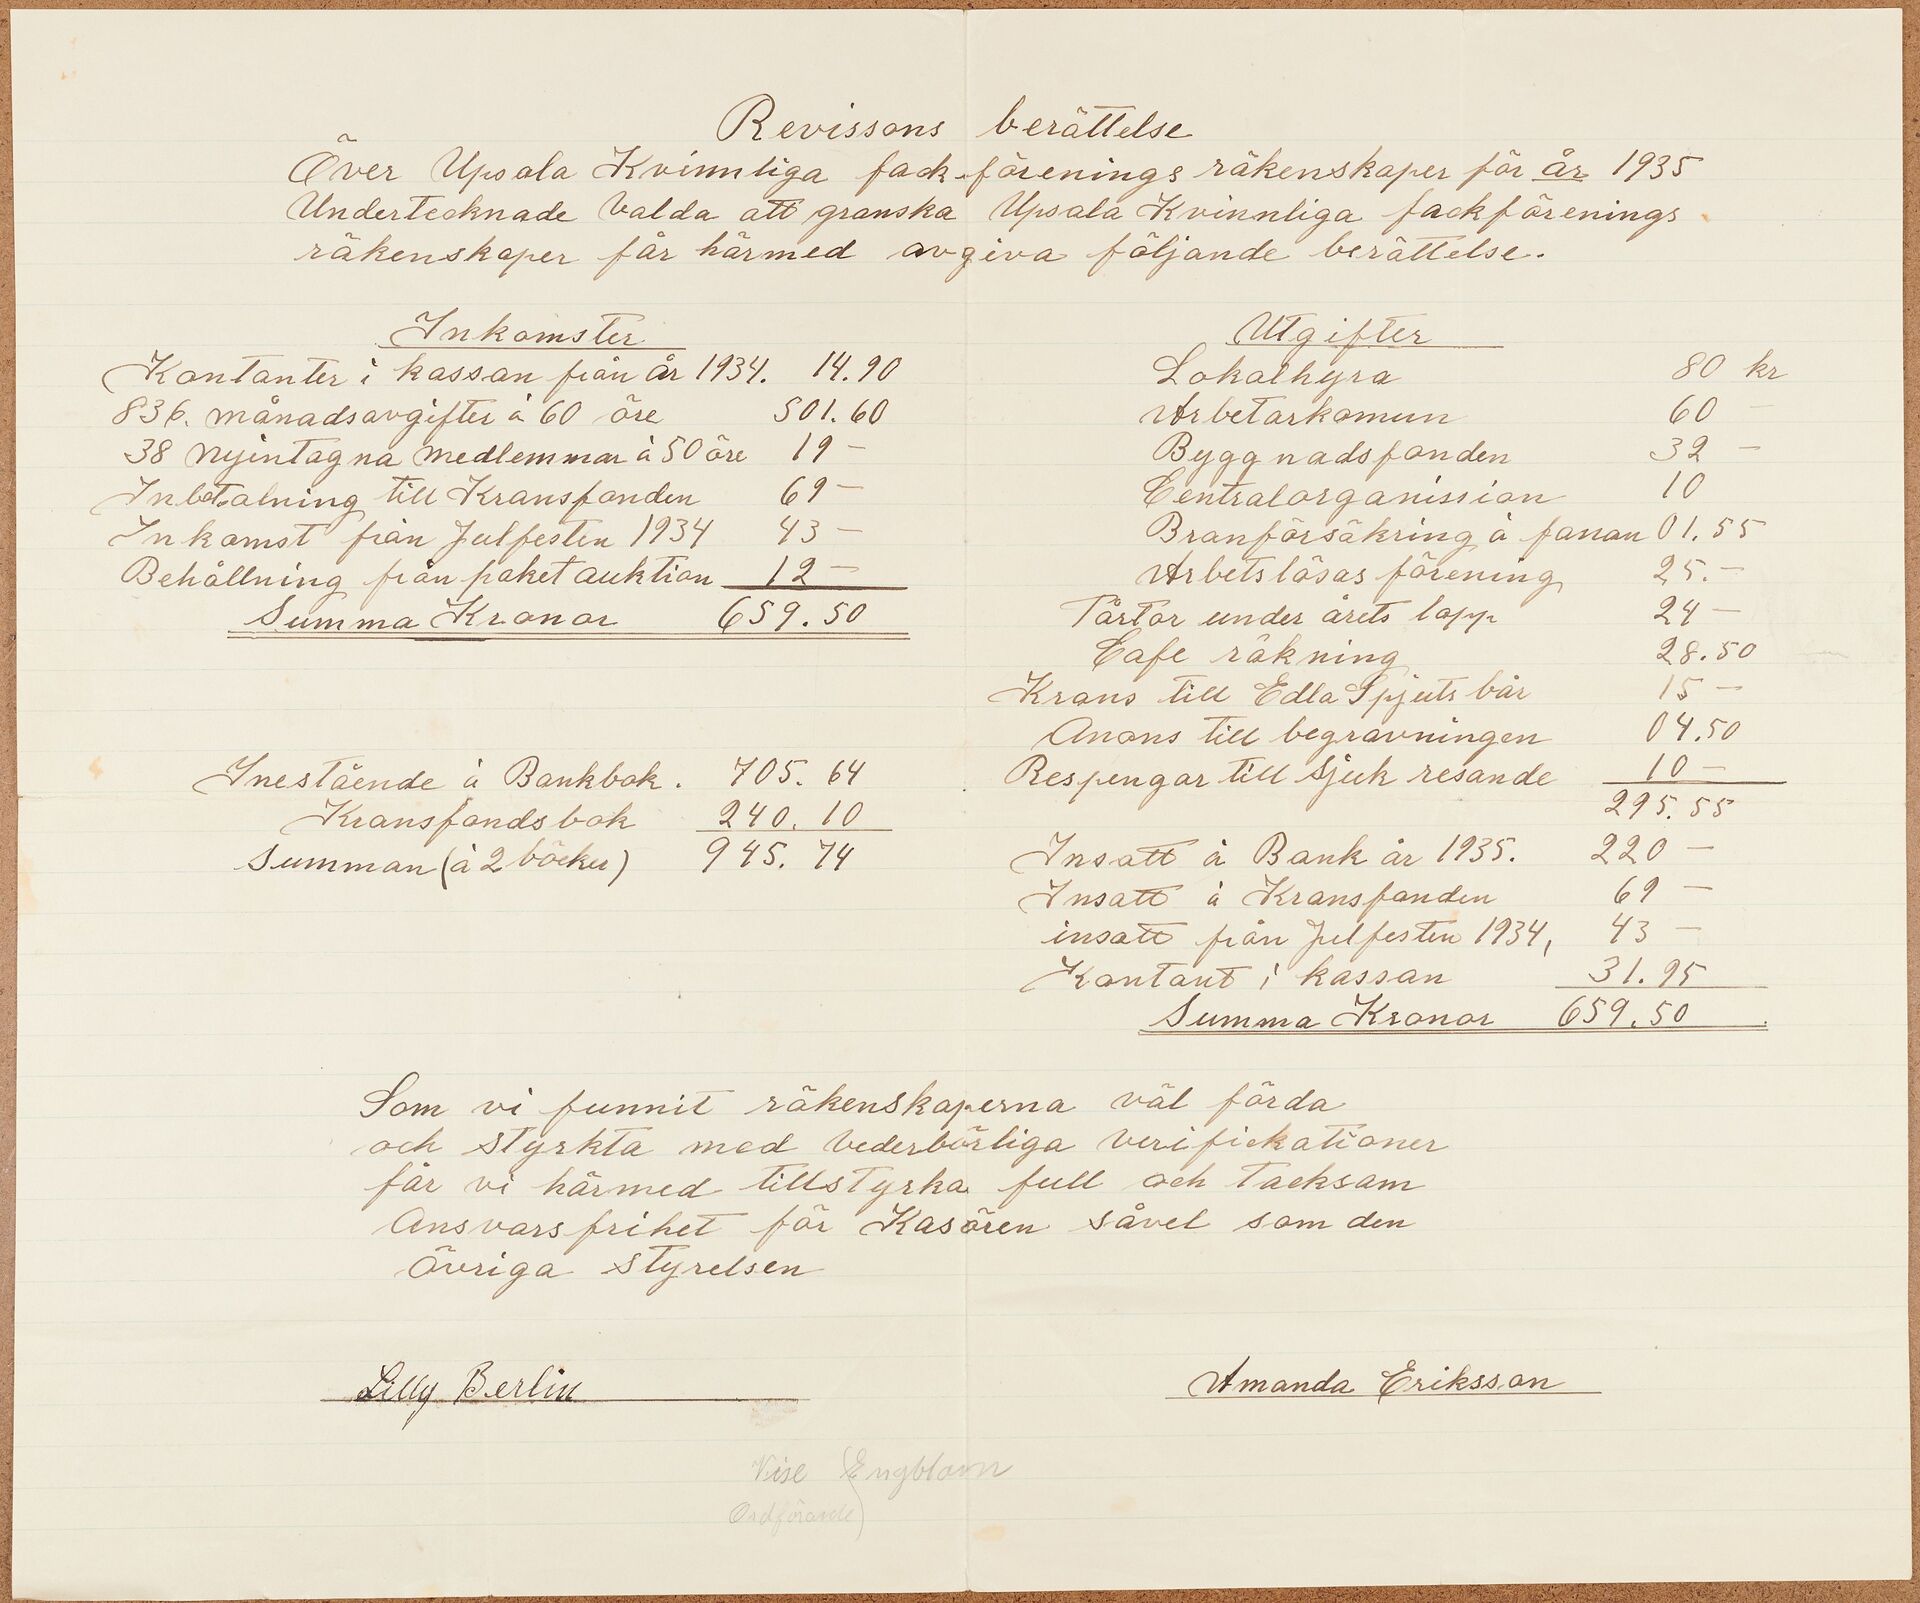 Revissons berättelse
Över Upsala Kvinnliga fackförenings räkenskaper för år 1935
Undertecknade Valda att granska Upsala Kvinnliga fackförenings
räkenskaper får härmed avgiva följande berättelse.
Inkomster
Kontanter i kassan från år 1934. 14.90
836. månadsavgifter á 60 öre 501.60
38 nyintagna medlemmar á 50 öre 19 —
Inbetalning till Kransfonden 69 —
Inkomst från Julfesten 1934 43 —
Behållning från paket auktion 12 —
Summa Kronor 659.50
Inestående á Bankbok. 705.64
Kransfondsbok 240.10
Summan (á 2 böcker) 945.74
Utgifter
Lokalhyra 80 kr
Arbetarkomun 60 —
Byggnadsfonden 32 —
Centralorganission 10
Branförsäkring á fanan 01.55
Arbetslösas förening 25.—
Tårtor under årets lopp 24 —
Cafe räkning 28.50
Krans till Edla Spjuts bår 15 —
Anons till begravningen 04.50
Respengar till sjuk resande 10 —
295.55
Insatt á Bank år 1935. 220 —
Insatt á Kransfonden 69 —
insatt från Julfesten 1934, 43 —
Kontant i kassan 31.95
Summa Kronor 659.50
Som vi funnit räkenskaperna väl förda
och styrkta med Vederbörliga verifickationer
får vi härmed tillstyrka full och tacksam
Ansvarsfrihet för Kasören såvel som den
övriga styrelsen
Lilly Berlin
Amanda Eriksson
Vise Engblom
Ordförande)